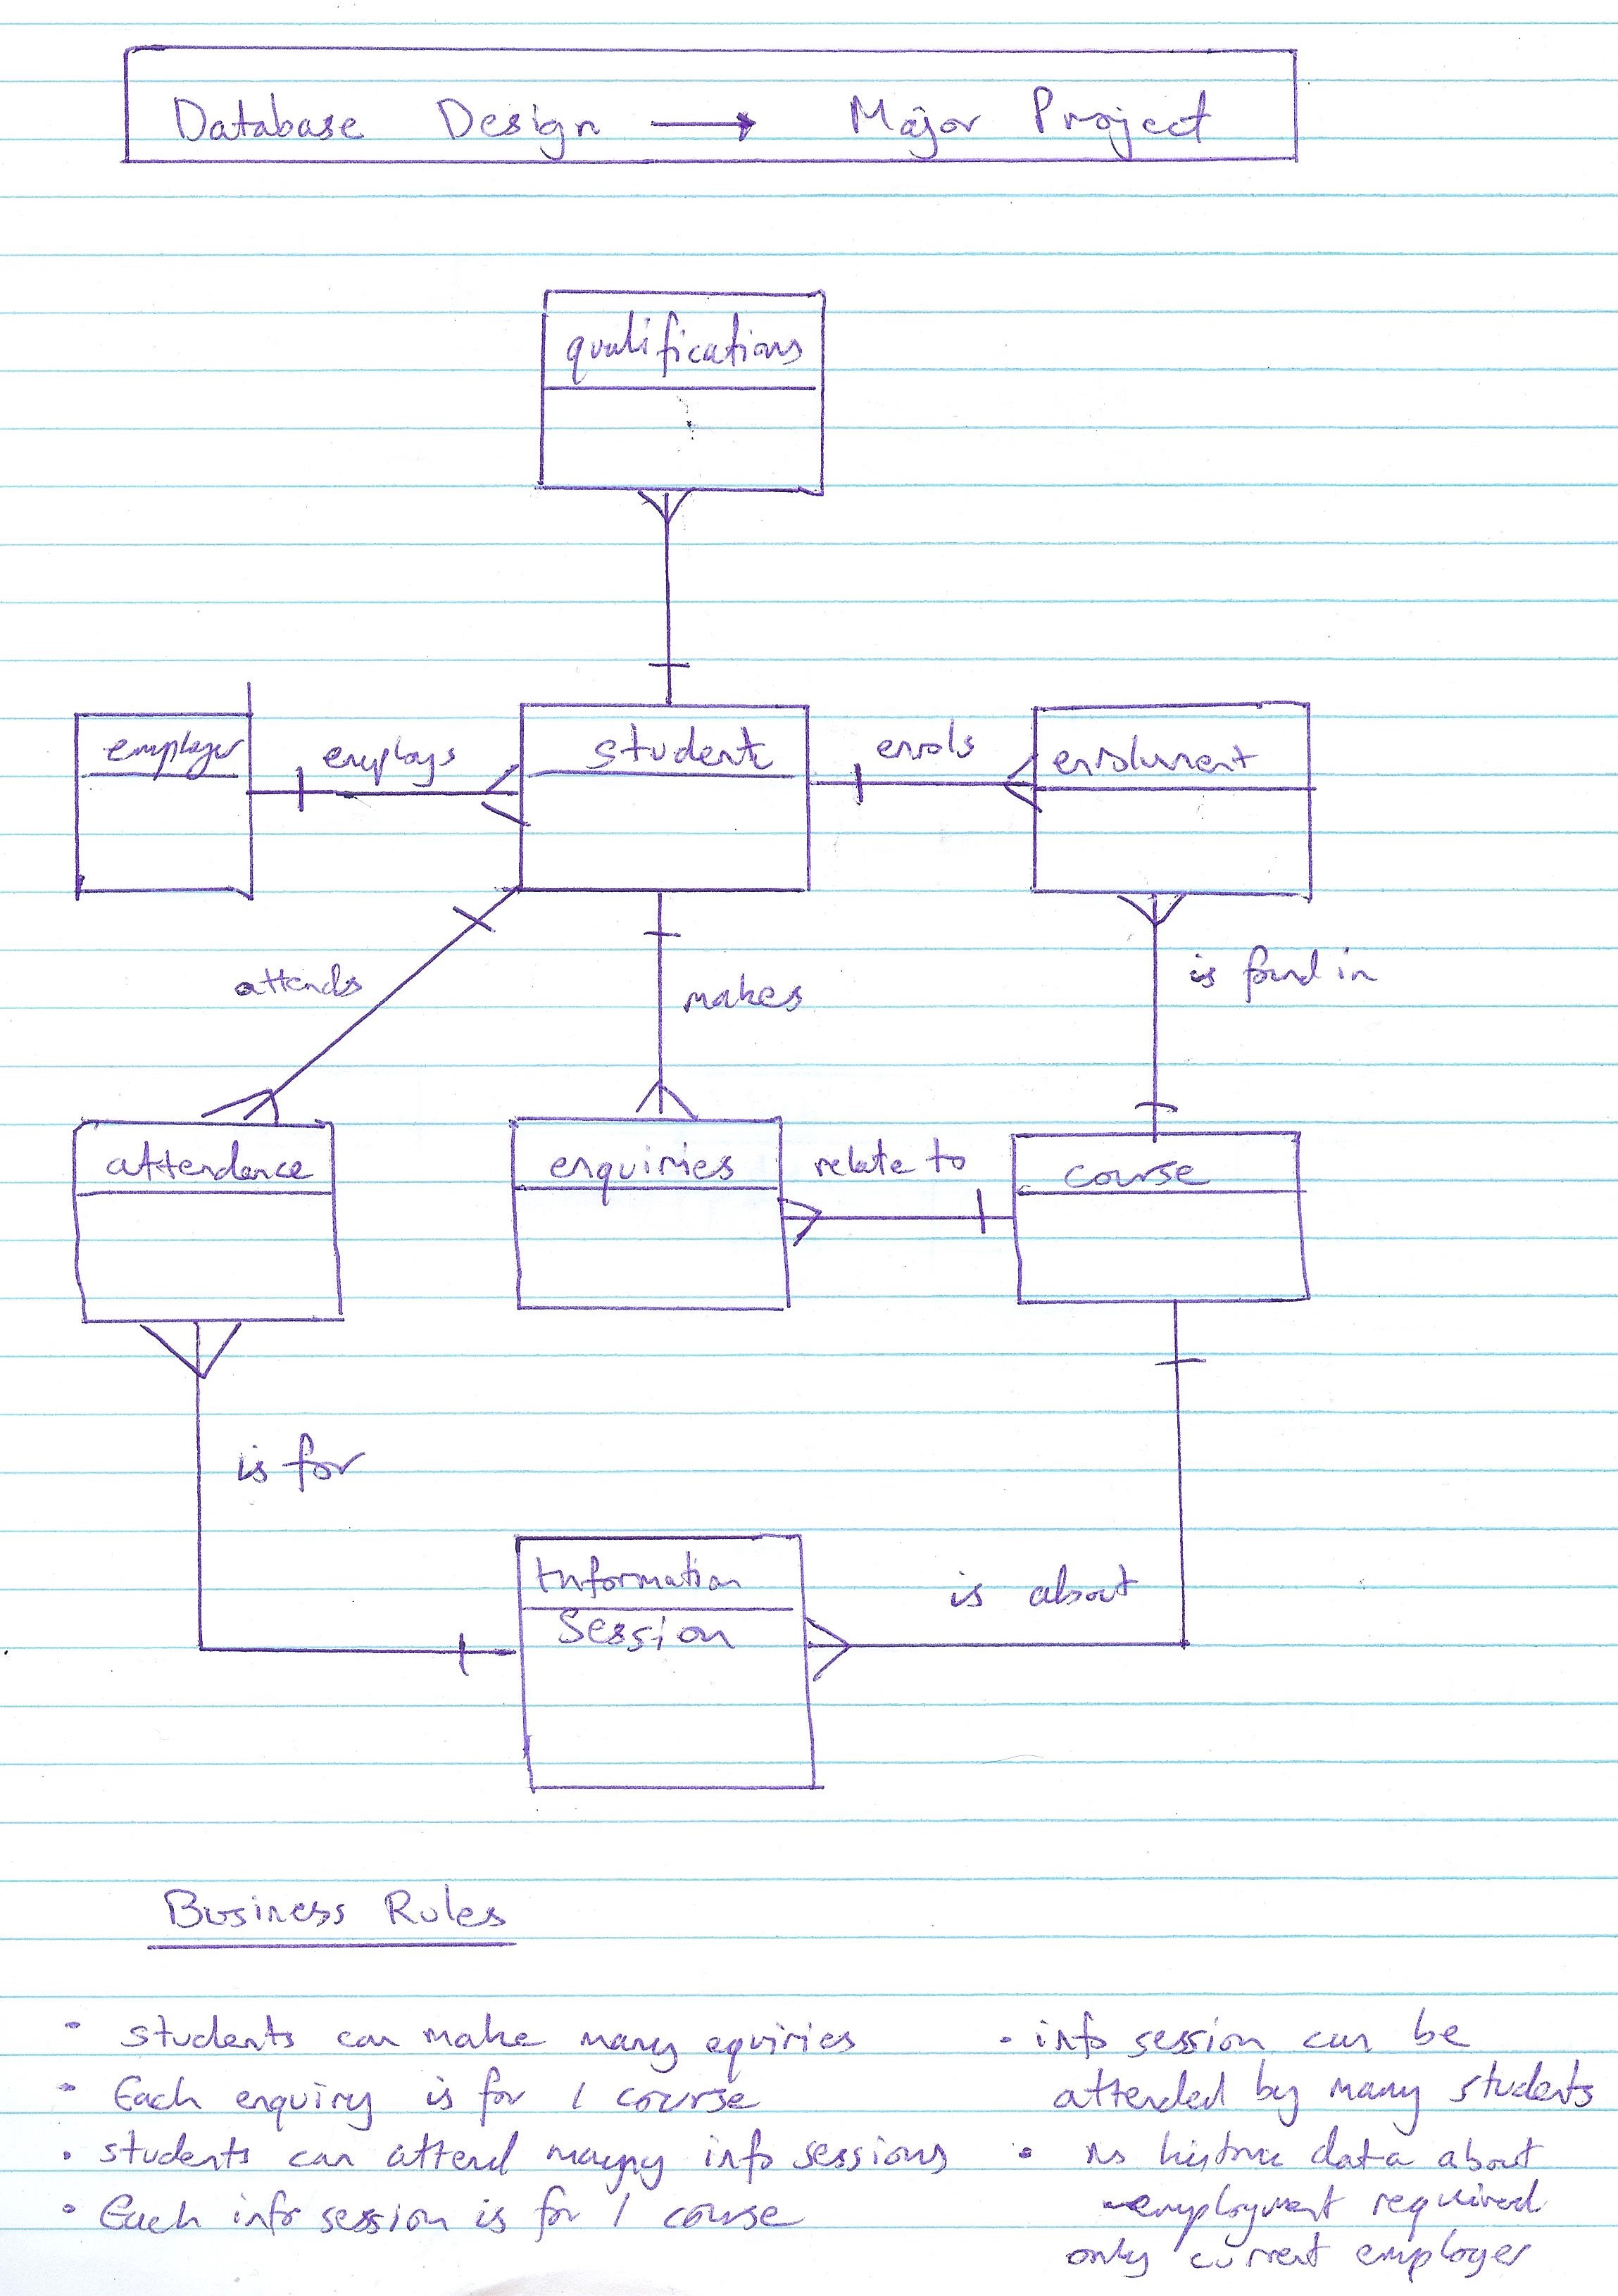 Database Design → Major Project
qualifications
employer
employs
student
enrols
enrolment
attends
makes
is found in
attendence
enquiries
relate to
course
is for
Information
Session
is about
Business Rules
• students can make many equiries
• Each enquiry is for 1 course
• students can attend mayny info sessions
• Each info session is for 1 course
• info session can be
attended by many students
• no historic data about
employment required
only current employer